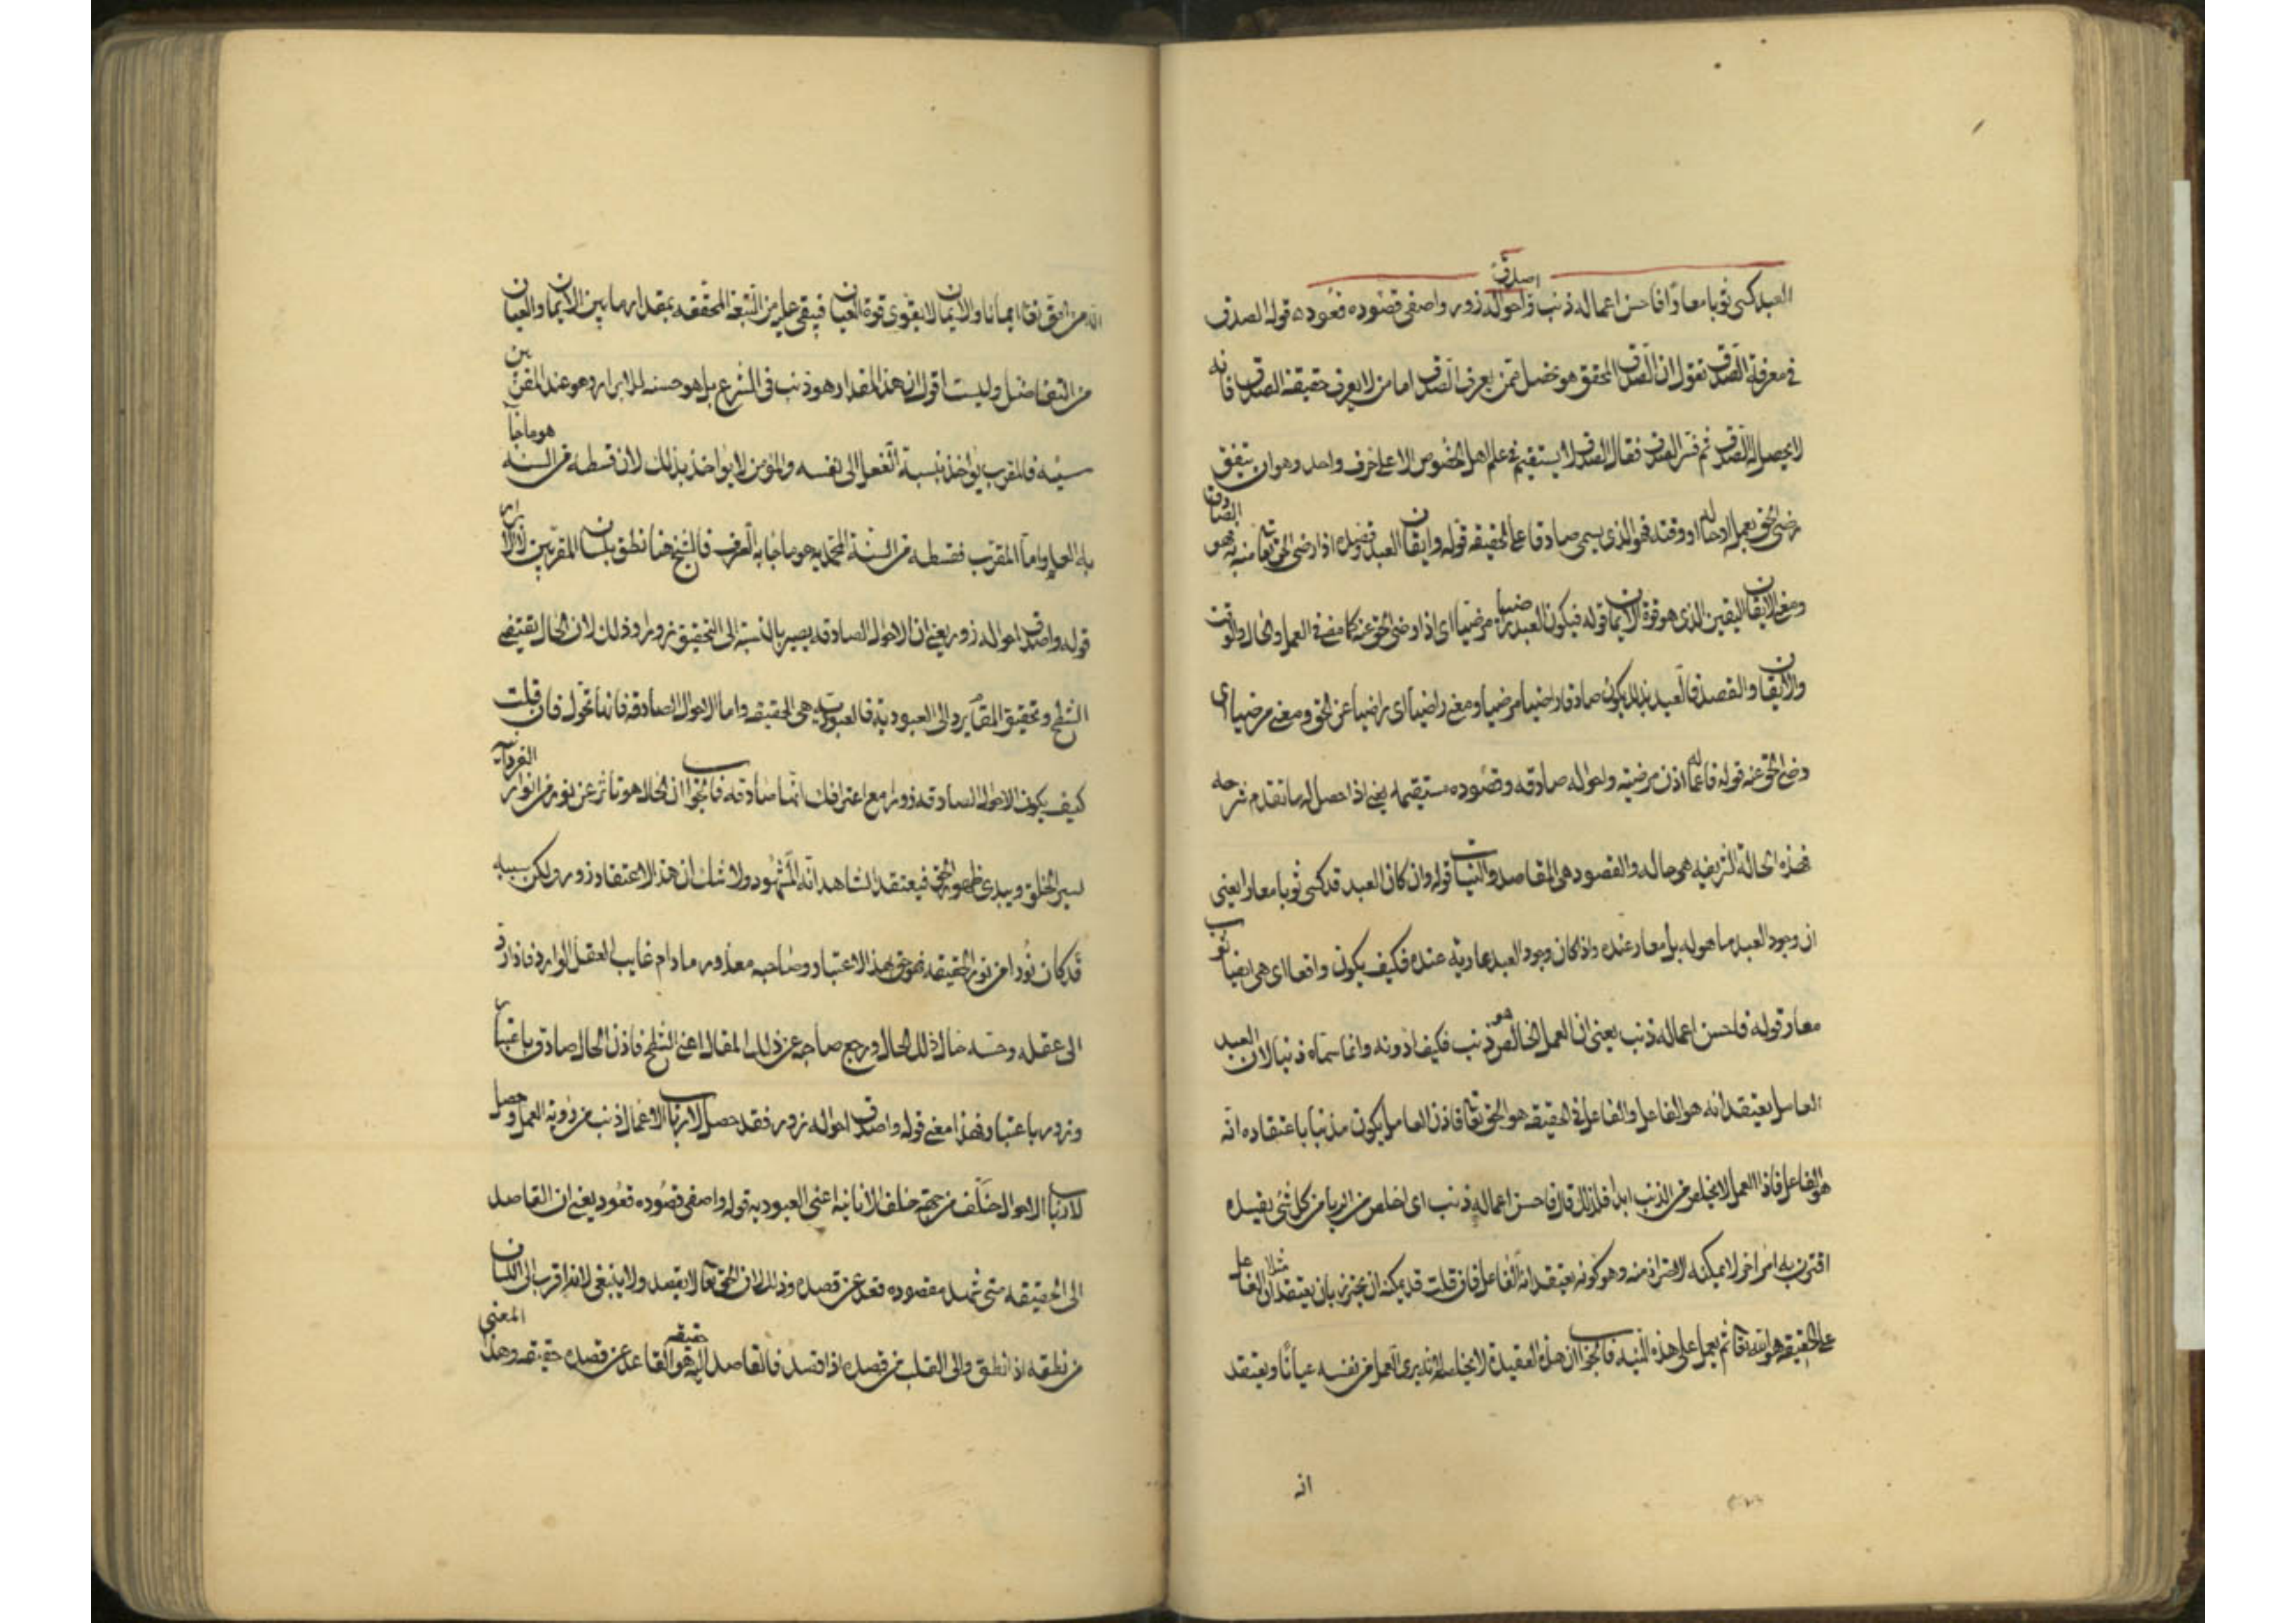 العبد كسى ثوبا معارا فاحسن اعماله ذنب واصدق احواله زور واصفى قصوده قعود ه قوله الصدق
فى معرفة الصدق يقول ان الصدق المحقق هو يحصل ممن يعرف الصدق اما من لا يعرف حقيقة الصدق فانه
لا يحصل له الصدق ثم فسر الصدق فقال الصدق لا يستقيم فى علم اهل الخصوص الا على حرف واحد وهو ان يتفق
رضى الحق بعمل العبد او حاله او وقته فهو الذى يسمى صادقا على الحقيقه قوله وايقان العبد وقصوده اذا رضى الحق تعا منه فهو الصادق
ومعنى الايقان اليقين الذى هو قوة الايمان قوله فيكون العبد راضيا مرضيا اى اذا رضى الحق عنه كما مضى فى العمل والحال والوقت
والايقان والقصد فالعبد بذلك يكون صادقا راضيا مرضيا ومعنى راضيا اى راضيا عن الحق ومعنى مرضيا اى
رضى الحق عنه قوله فاعماله اذن مرضيه واحواله صادقه وقصوده مستقيمه يعنى اذا حصل له ما تقدم شرحه
فهذه الحالة الشريفه هى حاله والقصود هى المقاصد والنيات قوله وان كان العبد قد كسى ثوبا معارا يعنى
ان وجود العبد ما هو له بل معار عنده واذا كان وجود العبد عارية عنده فكيف يكون واقعا اى هى ايضا ثوب
معار قوله فاحسن اعماله ذنب يعنى ان العمل الخالص هو ذنب فكيف ادونه وانما سماه ذنبا لان العبد
العامل يعتقد انه هو الفاعل والفاعل فى الحقيقه هو الحق تعا فاذن العامل يكون مذنبا باعتقاده انه
هو الفاعل فاذا العمل لا يخلص من الذنب ابدا فلذلك قال فاحسن اعماله ذنب اى اخلص من الريا من كل شى يفسده
اقترن به امر اخر لا يمكنه الاحتراز منه وهو كونه يعتقد انه الفاعل فان قلت قد يمكنه ان يحترز بان يعتقد مثلا ان الفاعل
على الحقيقه هو الله تعا ثم يعمل على هذه النيه فالجواب ان هذه العقيدة لا يخلصه لانه يرى العمل من نفسه عيانا ويعتقد
انه
انه من الحق تعا ايمانا والايمان لا يقوى قوة العيان فيبقى عليه من التبعة المحققه بمقدار ما بين الايمان والعيان
من التفاضل وليست اقول ان هذا المقدار هو ذنب فى الشرع بل هو حسنه للابرار وهو عند المقربين
سيئه فالمقرب يواخذ بنسبة الفعل الى نفسه والمؤمن لا يواخذ بذلك لان قسطه من السنه هو ما جآ
به العلم واما المقرب فقسطه من السنة المحمديه هو ما جا به العرف فالشيخ هنا نطق بلسان المقربين لا الابرار
قوله واصدق احواله زور يعنى ان الاحوال الصادقه يصير بالنسبة الى التحقيق زورا وذلك لان الحال يقتضى
الشطح وتحقيق المقام يرد الى العبودية فالعبودية هى الحقيقه واما الاحوال الصادقه فانها تحول فان قلت
كيف يكون الاحوال الصادقه زورا مع اعترافك انها صادقه فالجواب ان الحال هو تاثر عن نور من انوار الفردانية
يستر الخلق ويبدى ظهور الحق فيعتقد المشاهد انه المشهود ولا شك ان هذا الاعتقاد زور ولكن سببه
قد كان نورا من نور الحقيقه فهو حق بهذا الاعتبار وصاحبه معذور ما دام غايب العقل بالوارد فاذا رد
الى عقله وحسه حال ذلك الحال ورجع صاحبه عن ذلك المقال اعنى الشطح فاذن الحال صادق باعتبار
وزور باعتبار فهذا معنى قوله واصدق احواله زور فقد حصل لارباب الاعمال ذنب من رؤية العمل وحصل
لارباب الاحوال تخلف من جهة خلف الانانية اعنى العبوديه قوله واصفى قصوده قعود يعنى ان القاصد
الى الحقيقه متى شهد مقصوده قعد عن قصده وذلك لان الحق تعالى لا يقصد ولا ينبغى لانه اقرب الى اللسان
من نطقه اذا نطق والى القلب من قصده اذا قصد فالقاصد اليه حقيقه هو القاعد عن قصده حقيقه وهذا المعنى